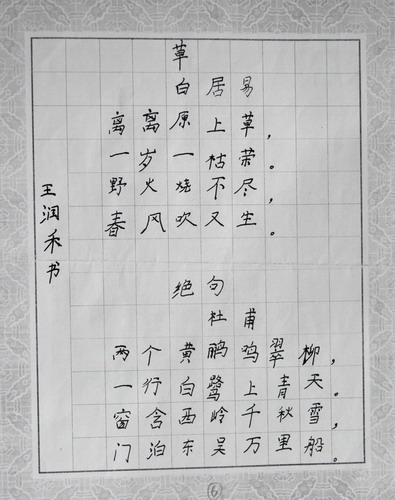 草
白居易
离离原上草，
一岁一枯荣。
野火烧不尽，
春风吹又生。
绝句
杜甫
两个黄鹂鸣翠柳，
一行白鹭上青天。
窗含西岭千秋雪，
门泊东吴万里船。
王润禾书
⑥